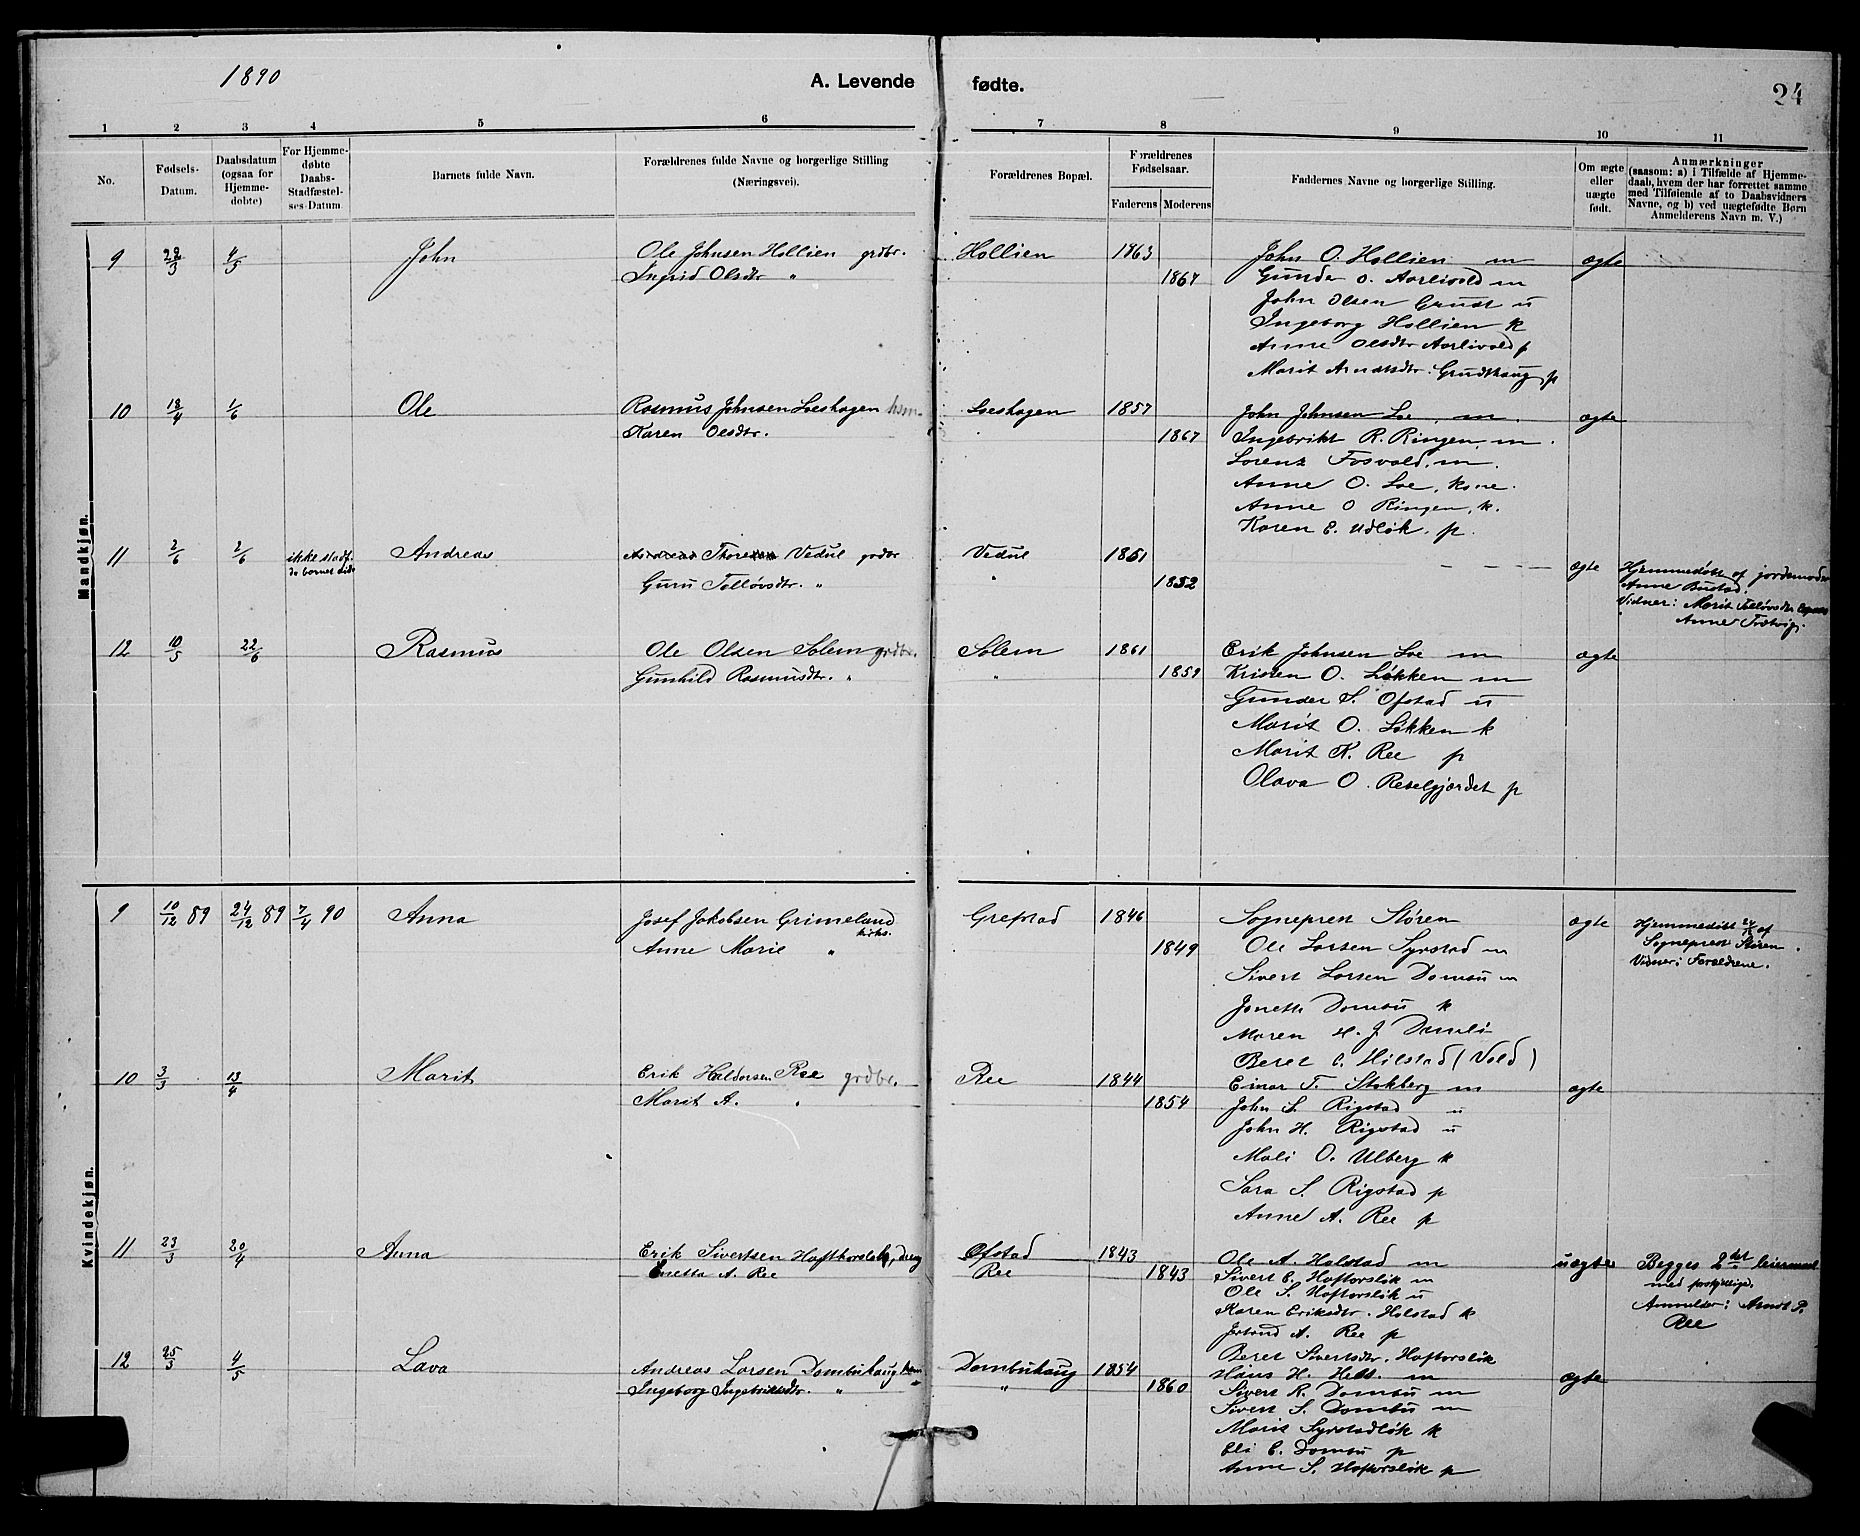 1890
A. Levende fødte.
24
1 2 3 4 5 6 7 8 9 10 11
No.
Fødsels-Datum.
Daabsdatum (ogsaa for Hjemme-døbte)
For Hjemme-døbte Daabs-Stadfæstel-ses-Datum.
Barnets fulde Navn.
Forældrenes fulde Navne og borgerlige Stilling (Næringsvei).
Forældrenes Bopæl.
Forældrenes Fødselsaar.
Faderens Moderens
Faddernes Navne og borgerlige Stilling.
Om ægte eller uægte født.
Anmærkninger
(saasom: a) i Tilfælde af Hjemme-
daab, hvem der har forrettet samme
med Tilføiende af to Daabsvidners
Navne, og b) ved uægtefødte Børn
Anmelderens Navn m. V.)
Mandkjøn.
9 22/3 4/5 John Ole Johnsen Hollien grdbr Hollien 1863 John O. Hollien m ægte
Ingrid Olsdtr " 1867 Gunder O. Aarlivold m
John Olsen Grudt u
Ingeborg Hollien k
Anne Olsdtr Aarlivold p
Marit Arnatsdtr. Grudthaug p
10 18/4 1/6 Ole Rasmus Johnsen Loeshagen hsm. Loeshagen 1857 John Johnsen Loe m. ægte
Karen Olsdtr. 1867 Ingebrikt R. Ringen, m.
Lorenz Fosvold, m.
Anne O. Loe, kone.
Anne O Ringen, k.
Karen E. Udløk, p.
11 2/6 2/6 ikke stadf. da barnet døde Andreas Thore Vedul grdbr Vedul 1861 - - - - ægte Hjemmedøbt af jordemoder
Guru Tolløvsdtr. " " 1852 Anne Bustad.
Vidner: Marit Tolløvsdtr
Anne Trætvig.
12 10/5 22/6 Rasmus Ole Olsen Solem grdbr. Solem 1861 Erik Johnsen Loe m ægte
Gunhild Rasmusdtr. " " 1859 Kristen O. Løkken m
Gunder S. Ofstad u
Marit O. Løkken k
Marit K. Ree p
Olava O. Reselgjærdet p
Kvindekjøn.
9 10/12 89 24/12 89 7/4 90 Anna Josef Jakobsen Grimeland Grefstad 1846 Sogneprest Støren ægte Hjemmedøbt 24/12 af
kirks.
Anne Marie " 1849 Ole Larsen Syrstad m Sogneprest Støren.
Sivert Larsen Dombu m Vidner: Forældrene.
Jonetta Dombu k
Maren H. J Dombu
Beret C. Hilstad (Vold)
10 3/3 13/4 Marit Erik Haldorsen Ree grdbr. Ree 1844 Einar T. Stokberg m ægte
Marit A. " 1854 John S. Rigstad u
John H. Rigstad u
Mali O. Ulberg k
Sara S. Rigstad p
Anne A. Ree p
11 23/3 20/4 Anna Erik Sivertsen Hoftorsløk, dreng Ofstad 1843 Ole A. Holstad m uægte Begges 2det leiermaal
Enetta A. Ree Ree 1843 Sivert E. Hoftorsløk m med forskjellige.
Ole S. Hoftorsløk u Anmelder: Arnt P.
Karen Eriksdtr. Holstad k Ree
Jertrud A. Ree p
Beret Sivertsdtr. Hoftorsløk
12 25/3 4/5 Lava Andreas Larsen Dombuhaug hsm Dombuhaug 1854 Hans H. Hilst. m ægte
Ingeborg Ingebriktsdtr. " " 1860 Sivert R. Dombu m
Sivert S. Dombu m
Marit Syrstadløk k
Eli E. Dombu p
Anne S. Hoftorsløk p